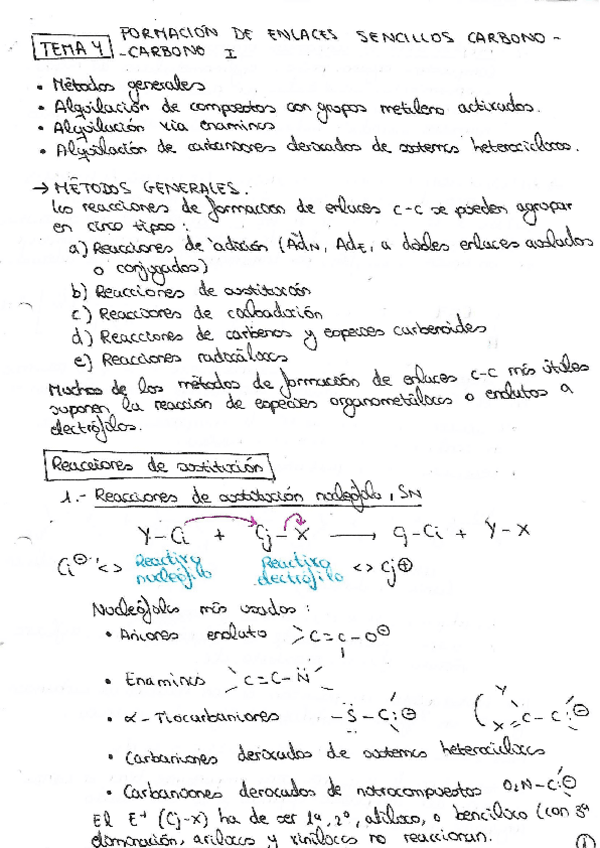 TEMA 4 FORMACIÓN DE ENLACES SENCILLOS CARBONO -
-CARBONO I
• Métodos generales
• Alquilación de compuestos con grupos metileno activados.
• Alquilación vía enaminas
• Alquilación de carbaniones derivados de sistemas heterocíclicos.
→ MÉTODOS GENERALES.
Las reacciones de formación de enlaces C-C se pueden agrupar
en cinco tipos:
a) Reacciones de adición (AdN, AdE, a dobles enlaces aislados
o conjugados)
b) Reacciones de sustitución
c) Reacciones de cicloadición
d) Reacciones de carbenos y especies carbenoides
e) Reacciones radicálicas
Muchos de los métodos de formación de enlaces C-C más útiles
suponen la reacción de especies organometálicas o enolatos a
electrófilos.
Reacciones de sustitución
1.- Reacciones de sustitución nucleófila, SN
Y-Ci + Cj-X → Cj-Ci + Y-X
Ci⊖ <> Reactivo Reactivo <> Cj⊕
nucleófilo electrófilo
Nucleófilos más usados:
• Aniones enolato >C=C-O⊖
• Enaminas >C=C-N
• α-Tiocarbaniones -S-C:⊖ Y X C-C:⊖
• Carbaniones derivados de sistemas heterocíclicos
• Carbaniones derivados de nitrocompuestos O₂N-C:⊖
El E⁺ (Cj-X) ha de ser 1º, 2º, alílico, o bencílico (con 3º
eliminación, arílicos y vinílicos no reaccionan.
①